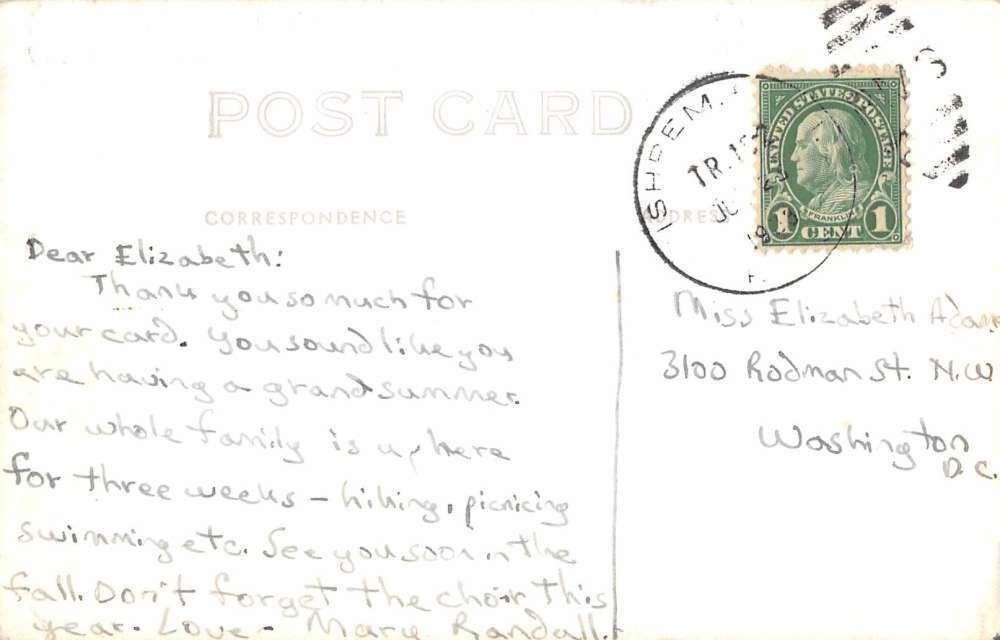 POST CARD
UNITED STATES POSTAGE
FRANKLIN
1 CENT 1
ISHPEM.
TR.
CORRESPONDENCE
Dear Elizabeth:
Thank you so much for
your card. You sound like you
are having a grand summer.
Our whole family is up here
for three weeks – hiking, picnicing
swimming etc. See you soon in the
fall. Don't forget the choir this
year. Love – Mary Randall.
Miss Elizabeth Adams
3100 Rodman St. N.W.
Washington
D.C.